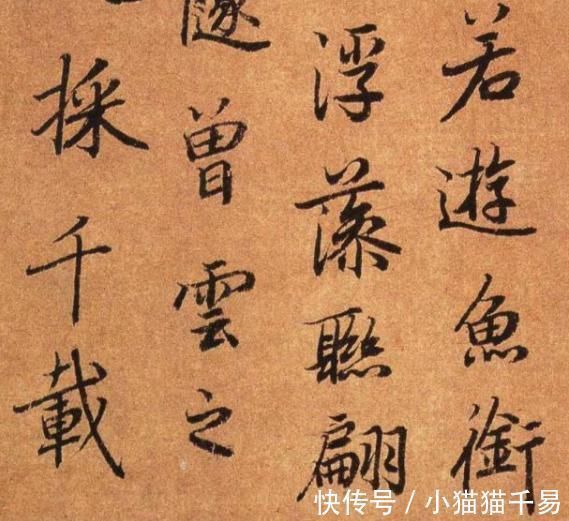 若遊魚銜
浮藻聯翩
曾雲之
採千載
快传号 / 小猫猫千易